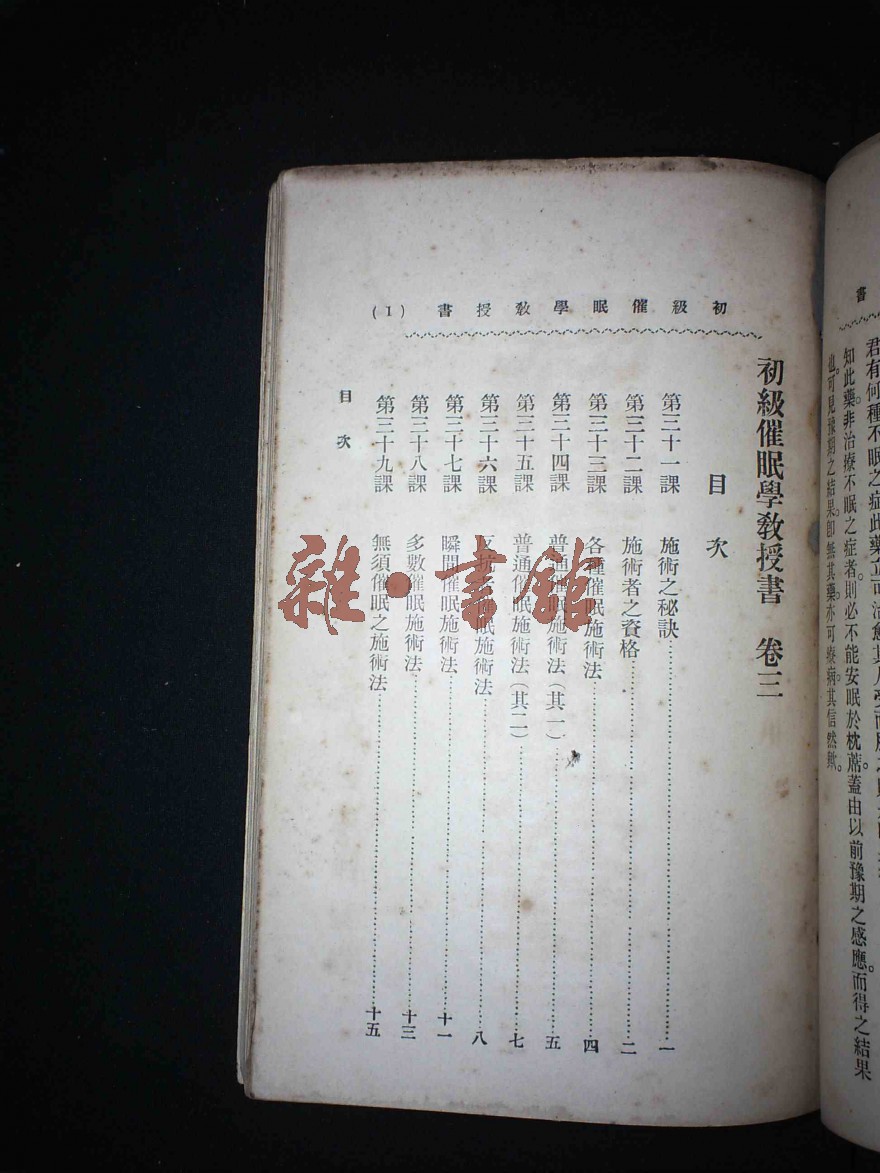 書
君有何種不眠之症此藥立可治愈其人受而服之則
知此藥。非治療不眠之症者則必不能安眠於枕蓆。蓋由以前豫期之感應。而得之結果
也。可見豫期之結果。卽無其藥。亦可療病。其信然歟。
初級催眠學敎授書 (1)
初級催眠學敎授書 卷三
目次
第三十一課 施術之秘訣……一
第三十二課 施術者之資格……二
第三十三課 各種催眠施術法……四
第三十四課 普通催眠施術法(其一)……五
第三十五課 普通催眠施術法(其二)……七
第三十六課 反抗者催眠施術法……八
第三十七課 瞬間催眠施術法……十一
第三十八課 多數催眠施術法……十三
第三十九課 無須催眠之施術法……十五
目次
雜·書館